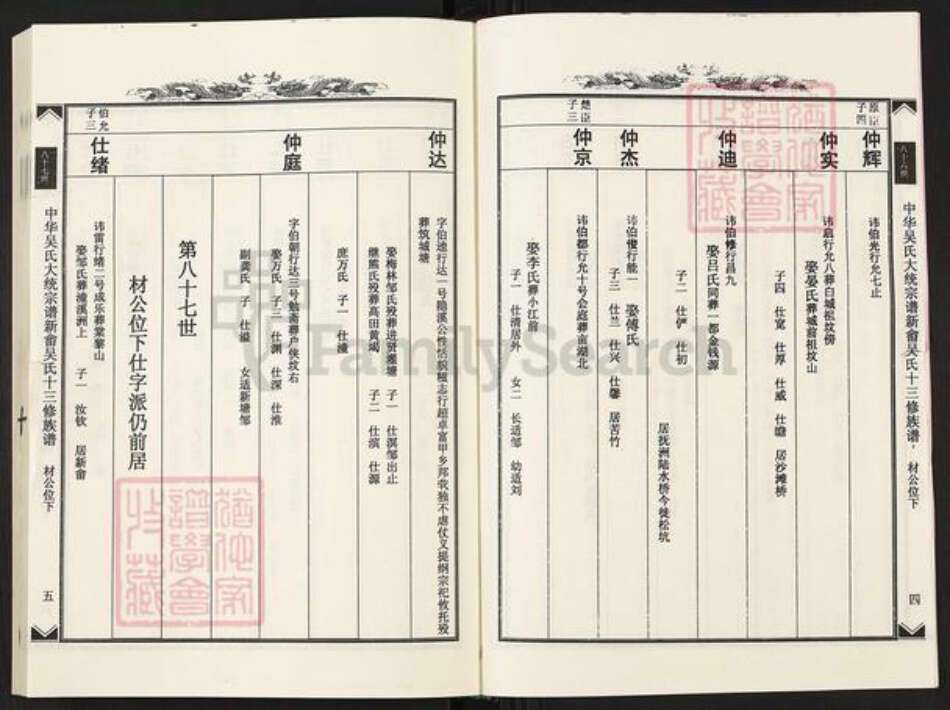 八十六世
中华吴氏大统宗谱新畲吴氏十三修族谱
材公位下
四
原臣子四
仲辉
讳伯光行允七止
仲实
讳启行允八葬白城祖坟傍
娶晏氏葬城窟祖坟山
子四 仕宽 仕厚 仕威 仕瞻 居沙滩桥
仲迪
讳伯修行昌九
娶吕氏同葬一都金钱源
子二 仕俨 仕初
居抚洲陆水桥今徙松坑
楚臣子三
仲杰
讳伯俊行能一 娶傅氏
子三 仕兰 仕兴 仕馨 居苦竹
仲京
讳伯都行允十号会庭葬亩湖北
娶李氏葬小江前
子一 仕清居外 女二 长适邹 幼适刘
仲达
字伯迪行达一号隐溪公性恬貌穆志行超卓富甲乡邦敦独不虐仗义提纲宗祀攸托殁
葬筑城塘
娶梅林邹氏殁葬进贤灌塘 子一 仕淇邹出止
继熊氏殁葬高田黄竭 子二 仕滨 仕源
庶万氏 子一 仕潼
仲庭
字伯朝行达三号勉斋葬户侠坟右
娶万氏 子三 仕渊 仕深 仕淮
副龚氏 子一 仕溢 女适新塘邹
第八十七世
材公位下仕字派仍前居
伯允子三
仕绪
讳雷行绪二号成乐葬棠黎山
娶邹氏葬潦溪洲上 子一 汝钦 居新畲
八十七世
中华吴氏大统宗谱新畲吴氏十三修族谱
材公位下
五
FamilySearch